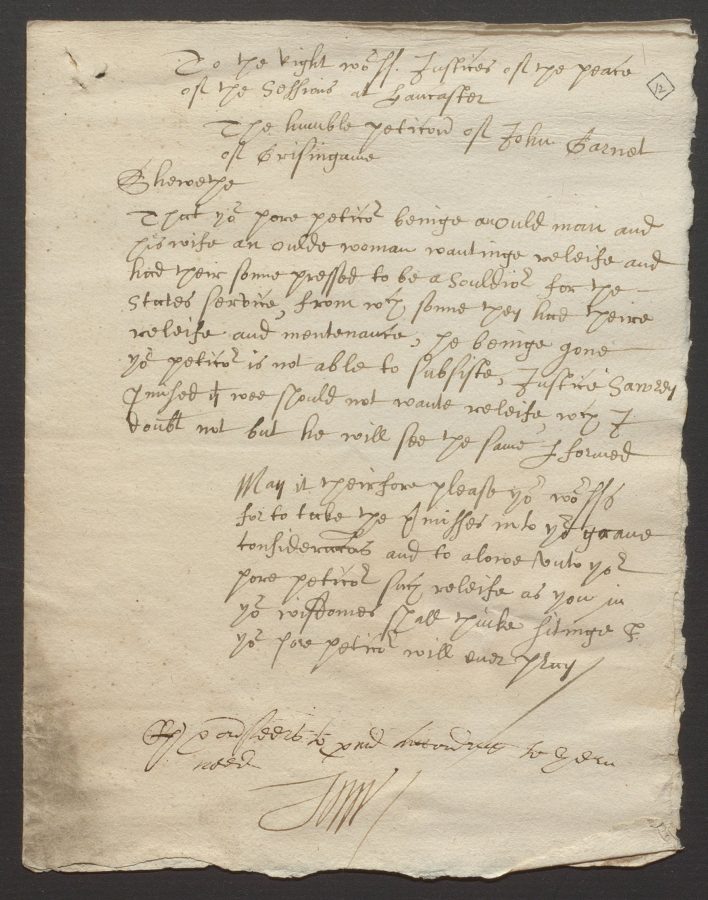 To the Right wor:ss: Justices of the peace
of the Sessions at Lancaster
12
The humble peticon of John Garnet
of Crisingame
Sheweth
That yor pore peticor beinge an Ould man and
his wife an oulde woman wantinge releife and
had their sonne pressed to be a Souldior for the
States service, from wch sonne they had theire
releife and mentenance, he beinge gone
yor peticor is not able to subsiste, Justice Sawrey
pmised yt wee should not wante releife wch I
doubt not but he will see the same pformed
May it theirfore please yor worssps
for to take the pmisses into yor graue
consideracons and to alowe vnto yor
pore peticor such releife as you in
yor wisdomes shall thinke fitinge &
yor pore peticor will euer pray
ouerseers to pvid according to their
need